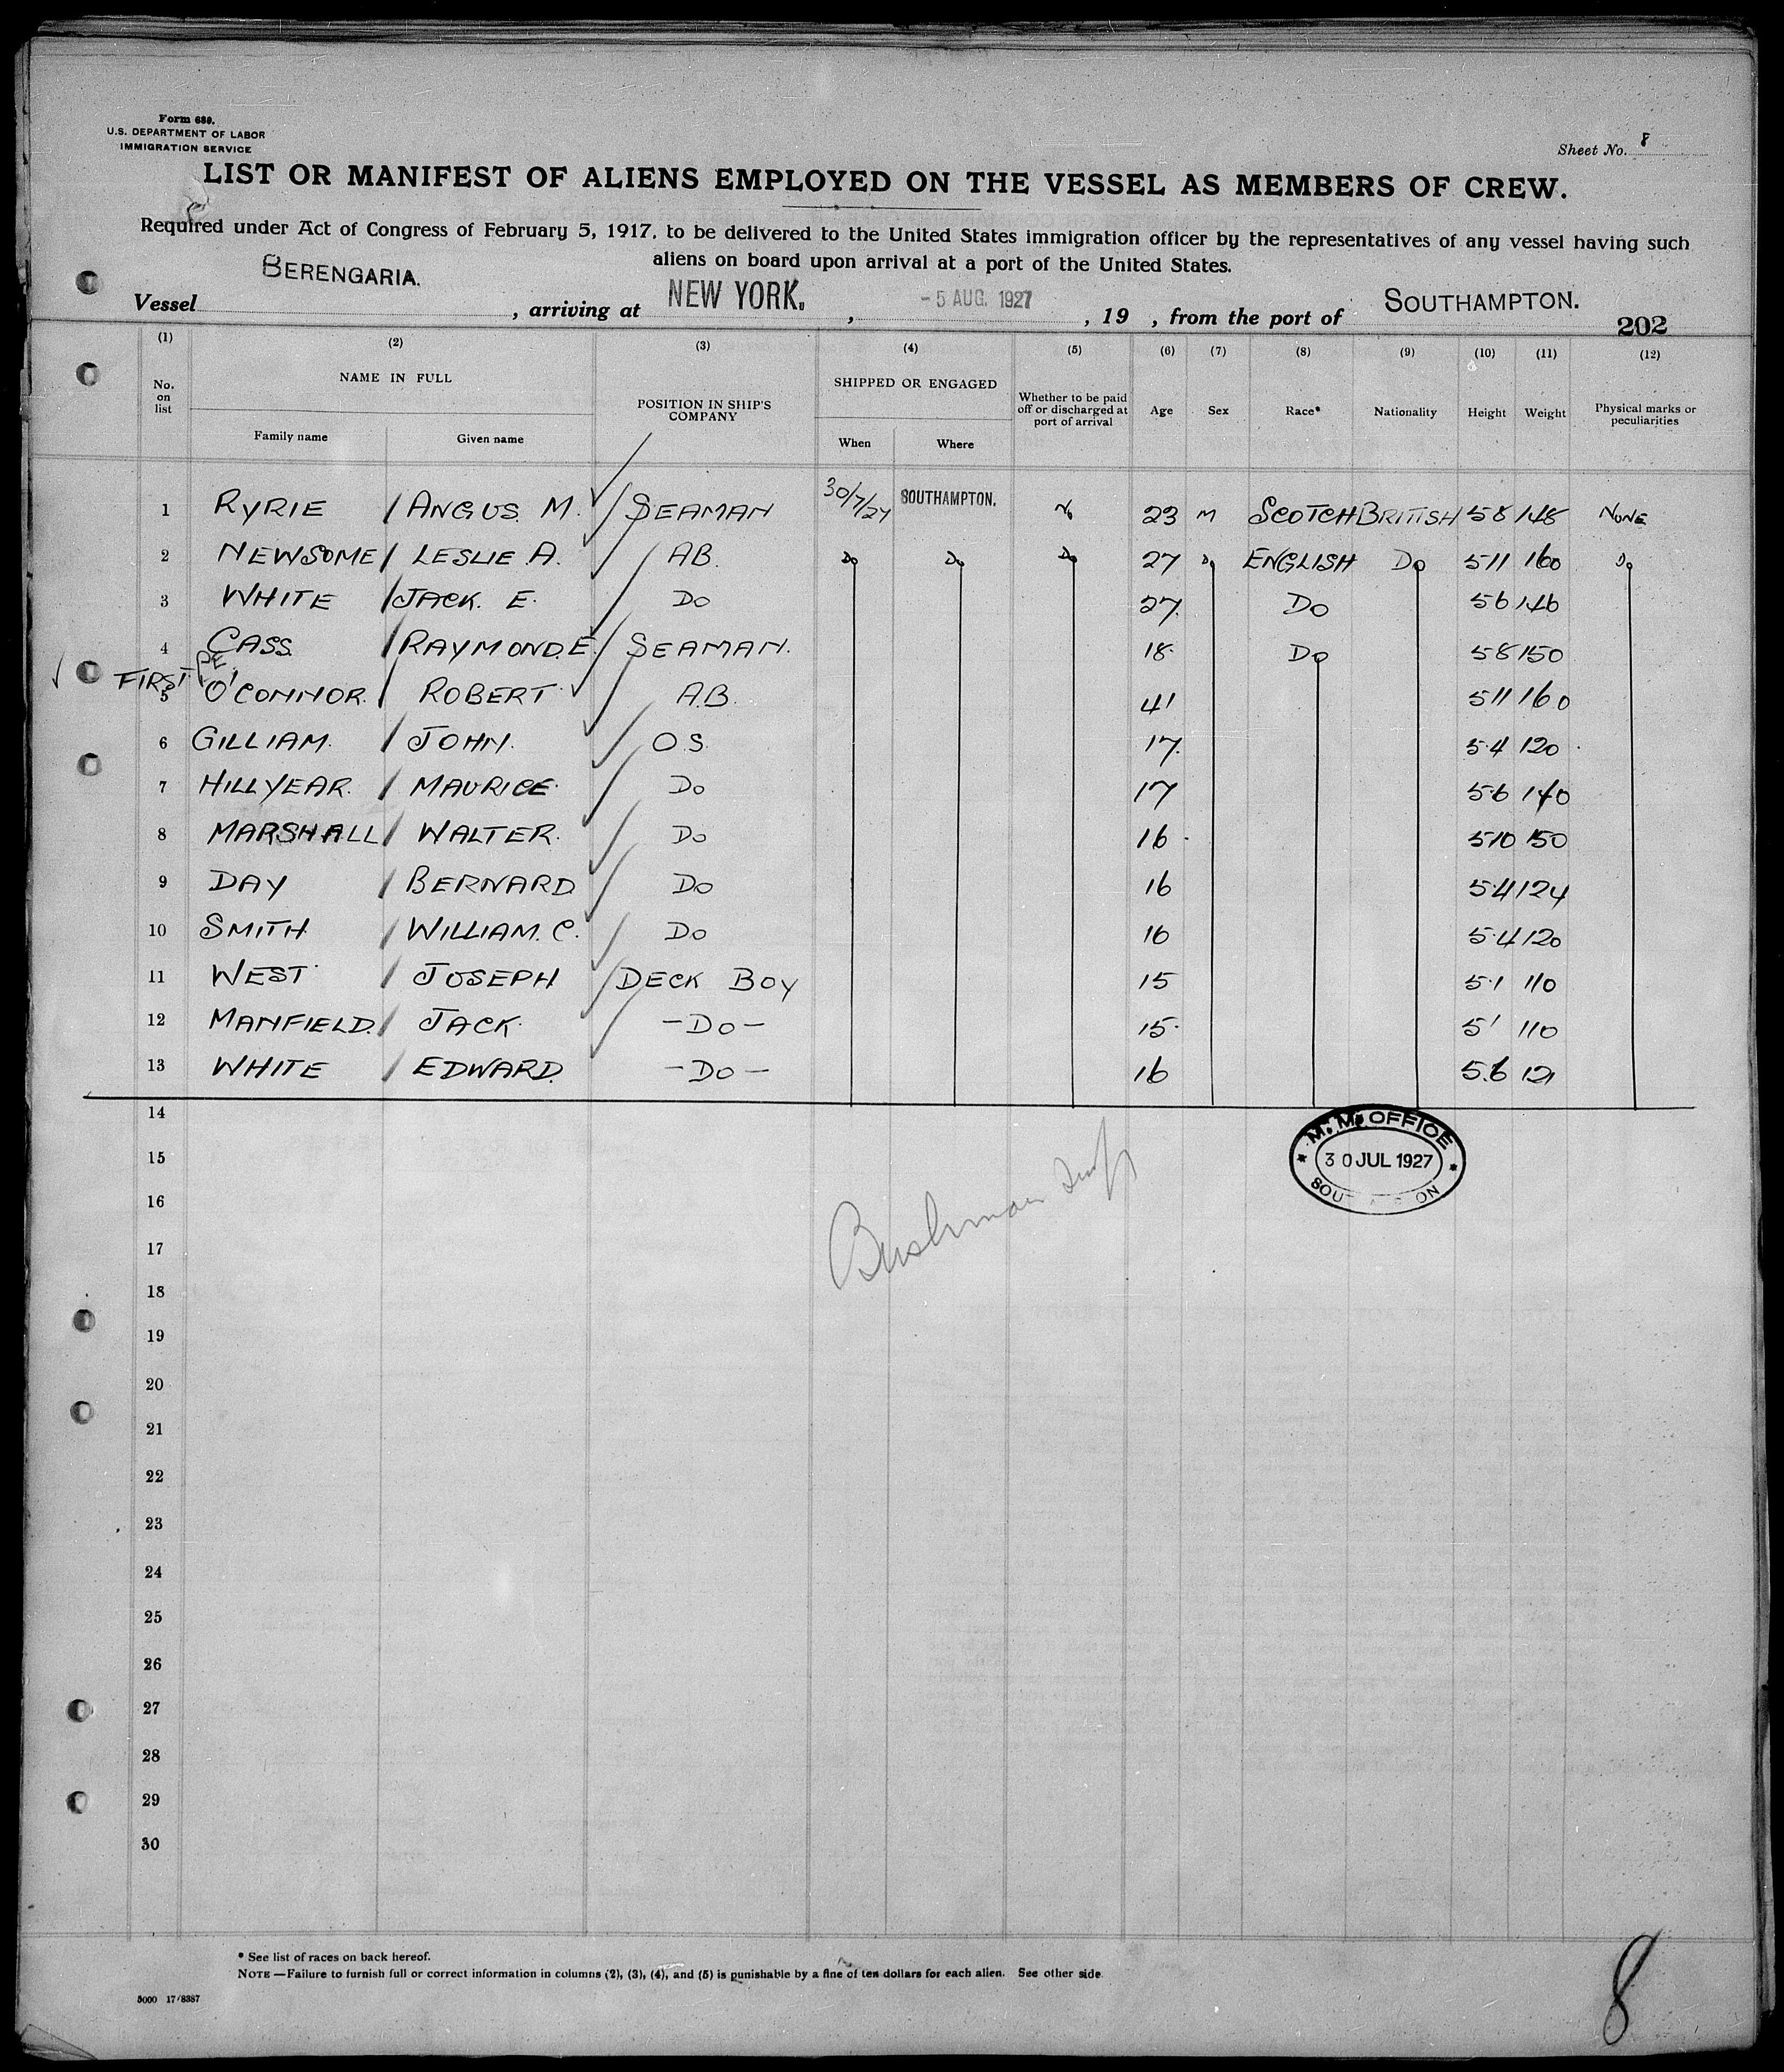 Form 689.
U.S. DEPARTMENT OF LABOR
IMMIGRATION SERVICE
Sheet No. 8
LIST OR MANIFEST OF ALIENS EMPLOYED ON THE VESSEL AS MEMBERS OF CREW.
Required under Act of Congress of February 5, 1917, to be delivered to the United States immigration officer by the representatives of any vessel having such
aliens on board upon arrival at a port of the United States.
Vessel BERENGARIA. , arriving at NEW YORK. , - 5 AUG. 1927 , 19 , from the port of SOUTHAMPTON.
202
(1) (2) (3) (4) (5) (6) (7) (8) (9) (10) (11) (12)
No. on list NAME IN FULL POSITION IN SHIP'S COMPANY SHIPPED OR ENGAGED Whether to be paid off or discharged at port of arrival Age Sex Race* Nationality Height Weight Physical marks or peculiarities
Family name Given name When Where
1 RYRIE / ANGUS. M. / SEAMAN 30/7/27 SOUTHAMPTON. No 23 M SCOTCH BRITISH 58 148 NONE
2 NEWSOME / LESLIE A. / AB. Do Do Do 27 Do ENGLISH Do 511 160 Do
3 WHITE / JACK. E. / Do 27. Do 56 146
4 CASS. / RAYMOND.E. / SEAMAN. 18. Do 58 150
FIRST
5 O'CONNOR. / ROBERT A.B. 41 511 160
6 GILLIAM. / JOHN. / O.S. 17. 5.4 120
7 HILLYEAR. / MAURICE. / Do 17 5.6 140
8 MARSHALL / WALTER. / Do 16 510 150
9 DAY / BERNARD / Do 16 5.4 124
10 SMITH / WILLIAM. C. / Do 16 5.4 120
11 WEST / JOSEPH / DECK BOY 15 5.1 110
12 MANFIELD. / JACK. / -Do- 15. 5' 110
13 WHITE / EDWARD. -Do- 16 5.6 121
14
15
16
17
18
19
20
21
22
23
24
25
26
27
28
29
30
M. M. OFFICE
30 JUL 1927
Bushman
* See list of races on back hereof.
NOTE —Failure to furnish full or correct information in columns (2), (3), (4), and (5) is punishable by a fine of ten dollars for each alien. See other side.
5000 17/8387
8